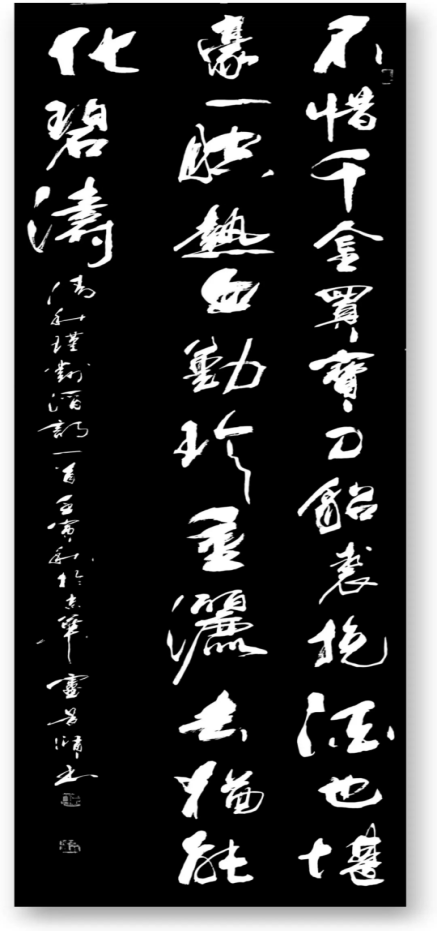 不惜千金買寶刀貂裘換酒也堪
豪一腔熱血勤珍重灑去猶能
化碧濤
清秋瑾對酒詩一首壬寅秋於京華靈